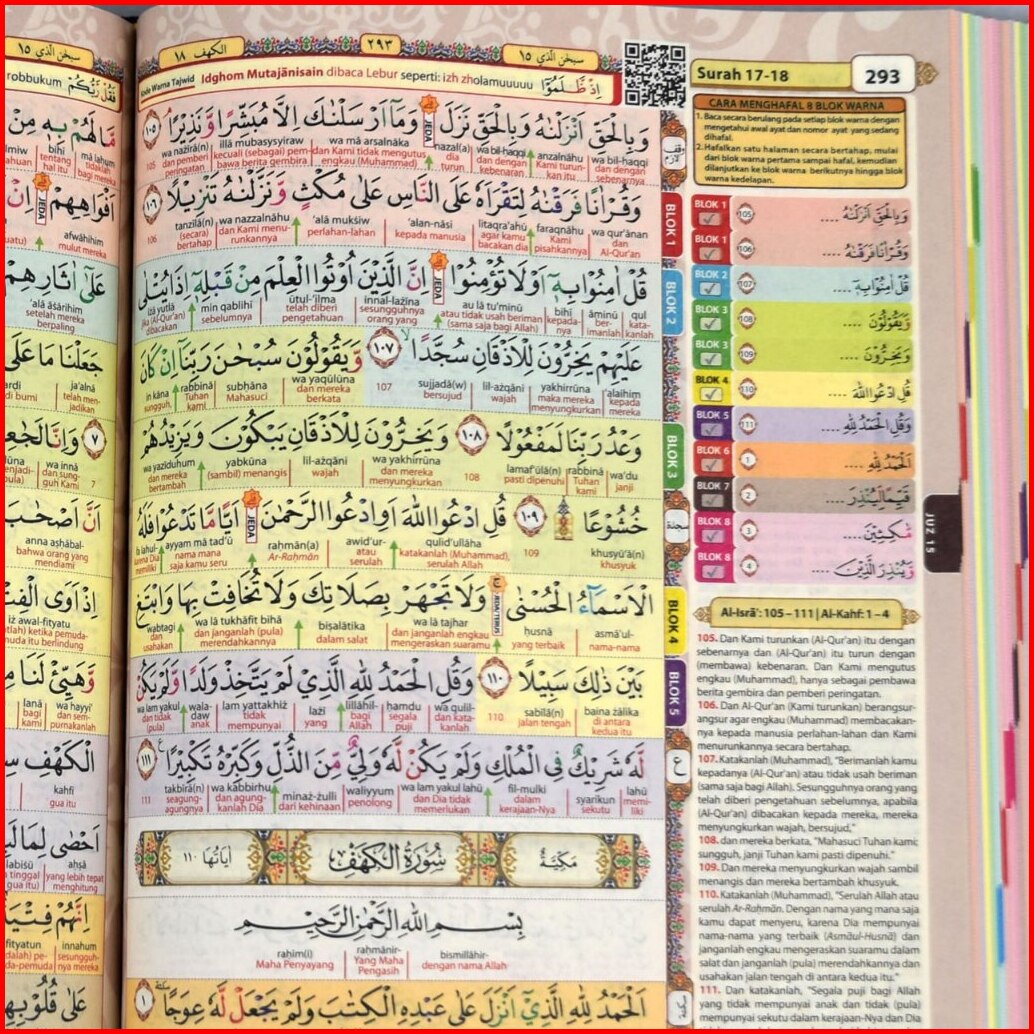 سبحن الذي ١٥
٢٩٣
الكهف ١٨
Kode Warna Tajwid Idghom Mutajānisain dibaca Lebur seperti: izh zholamuuuuu اِذْ ظَّلَمُوْٓا
وَبِالْحَقِّ اَنْزَلْنٰهُ وَبِالْحَقِّ نَزَلَۗ وَمَآ اَرْسَلْنٰكَ اِلَّا مُبَشِّرًا وَّنَذِيْرًاۘ ١٠٥
wa bil-haqqi anzalnāhu wa bil-haqqi nazal(a) wa mā arsalnāka illā mubasysyiraw wa nażīrā(n)
dan dengan sebenarnya Kami turunkan itu dan dengan kebenaran dia turun dan Kami tidak mengutus engkau (Muhammad) kecuali (sebagai) pembawa berita gembira dan pemberi peringatan 105
وَقُرْاٰنًا فَرَقْنٰهُ لِتَقْرَاَهٗ عَلَى النَّاسِ عَلٰى مُكْثٍ وَّنَزَّلْنٰهُ تَنْزِيْلًا ١٠٦
wa qur'ānan faraqnāhu litaqra'ahū 'alan-nāsi 'alā mukśiw wa nazzalnāhu tanzīlā(n)
dan Al-Qur'an Kami pisahkannya agar kamu bacakan dia kepada manusia perlahan-lahan dan Kami menurunkannya (secara) bertahap 106
قُلْ اٰمِنُوْا بِهٖٓ اَوْ لَا تُؤْمِنُوْاۗ اِنَّ الَّذِيْنَ اُوْتُوا الْعِلْمَ مِنْ قَبْلِهٖٓ اِذَا يُتْلٰى
qul āminū bihī au lā tu'minū innal-lażīna ūtul-'ilma min qablihī iżā yutlā
katakanlah berimanlah kepadanya atau tidak usah beriman (sama saja bagi Allah) sesungguhnya orang yang diberi pengetahuan sebelumnya jika (Al-Qur'an) dibacakan
عَلَيْهِمْ يَخِرُّوْنَ لِلْاَذْقَانِ سُجَّدًا ١٠٧ وَّيَقُوْلُوْنَ سُبْحٰنَ رَبِّنَآ اِنْ كَانَ
'alaihim yakhirrūna lil-ażqāni sujjadā(w) wa yaqūlūna subḥāna rabbinā in kāna
kepada mereka maka mereka menyungkurkan wajah bersujud 107 dan mereka berkata Mahasuci Tuhan kami sungguh,
وَعْدُ رَبِّنَا لَمَفْعُوْلًا ١٠٨ وَيَخِرُّوْنَ لِلْاَذْقَانِ يَبْكُوْنَ وَيَزِيْدُهُمْ
wa'du rabbinā lamaf'ūlā(n) wa yakhirrūna lil-ażqāni yabkūna wa yazīduhum
janji Tuhan kami pasti dipenuhi 108 dan mereka menyungkurkan wajah (sambil) menangis dan mereka bertambah
خُشُوْعًا ١٠٩ قُلِ ادْعُوا اللّٰهَ اَوِ ادْعُوا الرَّحْمٰنَۗ اَيًّا مَّا تَدْعُوْا فَلَهُ
khusyū'ā(n) qulid'ullāha awid'ur- raḥmān(a) ayyam mā tad'ū fa lahul-
khusyuk 109 katakanlah (Muhammad), serulah Allah atau serulah Ar-Raḥmān nama mana saja kamu seru karena Dia memiliki
الْاَسْمَاۤءُ الْحُسْنٰىۚ وَلَا تَجْهَرْ بِصَلَاتِكَ وَلَا تُخَافِتْ بِهَا وَابْتَغِ
asmā'ul- ḥusnā wa lā tajhar biṣalātika wa lā tukhāfit bihā wabtagi
nama-nama yang terbaik dan janganlah engkau mengeraskan suaramu dalam salat dan janganlah (pula) merendahkannya dan usahakan
بَيْنَ ذٰلِكَ سَبِيْلًا ١١٠ وَقُلِ الْحَمْدُ لِلّٰهِ الَّذِيْ لَمْ يَتَّخِذْ وَلَدًا وَّلَمْ يَكُنْ
baina żālika sabīlā(n) wa qulil- ḥamdu lillāhil- lażī lam yattakhiż waladaw wa lam yakul
di antara kedua itu jalan tengah 110 dan katakanlah segala puji bagi Allah yang tidak mempunyai anak dan tidak (pula)
لَّهٗ شَرِيْكٌ فِى الْمُلْكِ وَلَمْ يَكُنْ لَّهٗ وَلِيٌّ مِّنَ الذُّلِّ وَكَبِّرْهُ تَكْبِيْرًا ١١١
lahū syarīkun fil-mulki wa lam yakul lahū waliyyum minaż-żulli wa kabbirhu takbīrā(n)
memiliki sekutu dalam kerajaan-Nya dan Dia tidak memerlukan penolong dari kehinaan dan agungkanlah Dia seagung-agungnya 111
مَكِّيَّةٌ سُوْرَةُ الْكَهْفِ اٰيَاتُهَا ١١٠
بِسْمِ اللّٰهِ الرَّحْمٰنِ الرَّحِيْمِ
bismillāhir- raḥmānir- raḥīm(i)
dengan nama Allah Yang Maha Pengasih Maha Penyayang
اَلْحَمْدُ لِلّٰهِ الَّذِيْٓ اَنْزَلَ عَلٰى عَبْدِهِ الْكِتٰبَ وَلَمْ يَجْعَلْ لَّهٗ عِوَجًا ١
BLOK 1
BLOK 2
BLOK 3
BLOK 4
BLOK 5
Surah 17-18
293
CARA MENGHAFAL 8 BLOK WARNA
1. Baca secara berulang pada setiap blok warna dengan
mengetahui awal ayat dan nomor ayat yang sedang
dihafal.
2. Hafalkan satu halaman secara bertahap, mulai
dari blok warna pertama sampai hafal, kemudian
dilanjutkan ke blok warna berikutnya hingga blok
warna kedelapan.
BLOK 1 105 وَبِالْحَقِّ اَنْزَلْنٰهُ ....
BLOK 1 106 وَقُرْاٰنًا فَرَقْنٰهُ ....
BLOK 2 107 قُلْ اٰمِنُوْا بِهٖٓ ....
BLOK 3 108 وَّيَقُوْلُوْنَ ....
BLOK 3 109 وَيَخِرُّوْنَ ....
BLOK 4 110 قُلِ ادْعُوا اللّٰهَ ....
BLOK 5 111 وَقُلِ الْحَمْدُ لِلّٰهِ ....
BLOK 6 1 اَلْحَمْدُ لِلّٰهِ ....
BLOK 7 2 قَيِّمًا لِّيُنْذِرَ ....
BLOK 8 3 مَّاكِثِيْنَ ....
BLOK 8 4 وَّيُنْذِرَ الَّذِيْنَ ....
JUZ 15
Al-Isrā': 105 – 111 | Al-Kahf: 1 – 4
105. Dan Kami turunkan (Al-Qur'an) itu dengan
sebenarnya dan (Al-Qur'an) itu turun dengan
(membawa) kebenaran. Dan Kami mengutus
engkau (Muhammad), hanya sebagai pembawa
berita gembira dan pemberi peringatan.
106. Dan Al-Qur'an (Kami turunkan) berangsur-
angsur agar engkau (Muhammad) membacakan-
nya kepada manusia perlahan-lahan dan Kami
menurunkannya secara bertahap.
107. Katakanlah (Muhammad), "Berimanlah kamu
kepadanya (Al-Qur'an) atau tidak usah beriman
(sama saja bagi Allah). Sesungguhnya orang yang
telah diberi pengetahuan sebelumnya, apabila
(Al-Qur'an) dibacakan kepada mereka, mereka
menyungkurkan wajah, bersujud,"
108. dan mereka berkata, "Mahasuci Tuhan kami;
sungguh, janji Tuhan kami pasti dipenuhi."
109. Dan mereka menyungkurkan wajah sambil
menangis dan mereka bertambah khusyuk.
110. Katakanlah (Muhammad), "Serulah Allah atau
serulah Ar-Raḥmān. Dengan nama yang mana saja
kamu dapat menyeru, karena Dia mempunyai
nama-nama yang terbaik (Asmāul-Husnā) dan
janganlah engkau mengeraskan suaramu dalam
salat dan janganlah (pula) merendahkannya dan
usahakan jalan tengah di antara kedua itu."
111. Dan katakanlah, "Segala puji bagi Allah
yang tidak mempunyai anak dan tidak (pula)
mempunyai sekutu dalam kerajaan-Nya dan Dia